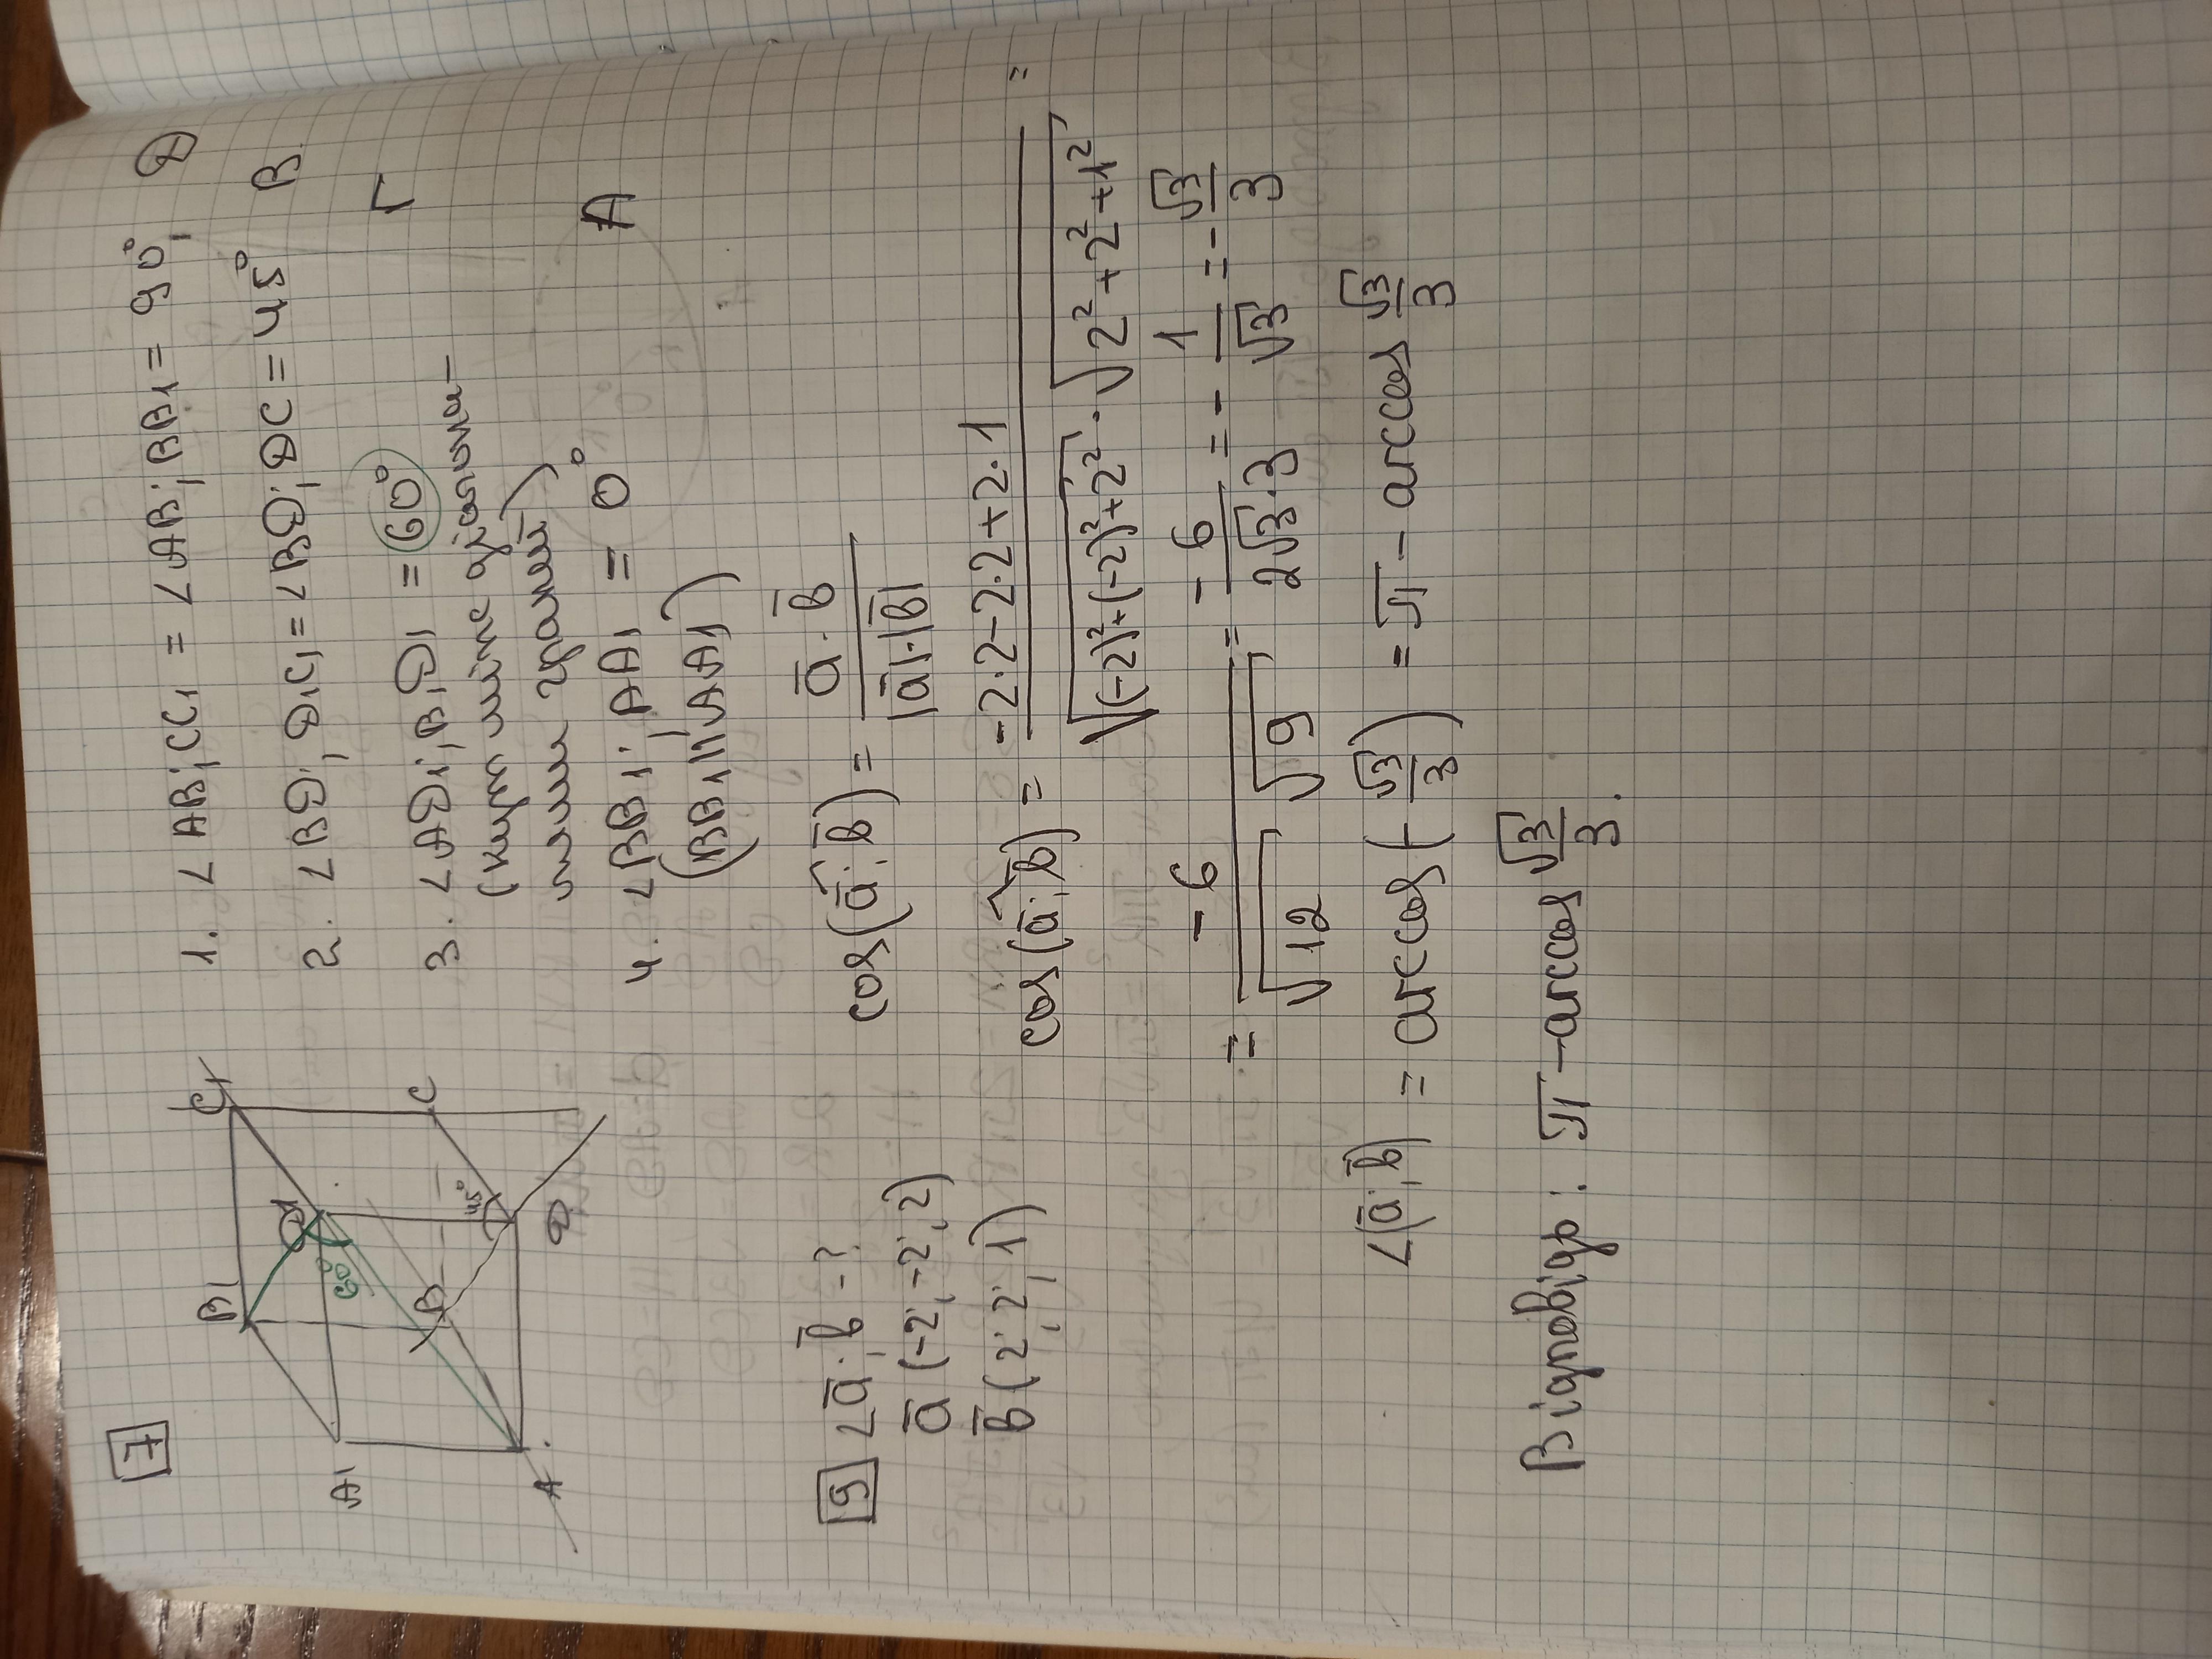 7
B1
C1
A1
D1
60°
B
C
45°
A
D
1. ∠AB; CC1 = ∠AB; BB1 = 90°, Д
2. ∠BD; D1C1 = ∠BD; DC = 45° В
3. ∠AD1; B1D1 = 60° Г
(кут між діагона-
лями граней)
4. ∠BB1; AA1 = 0° А
(BB1 || AA1)
9 ∠a̅; b̅ - ?
a̅ (-2; -2; 2)
b̅ (2; 2; 1)
cos(a̅; b̅) = a̅ · b̅ / |a̅|·|b̅|
cos(a̅; b̅) = -2·2-2·2+2·1 / √((-2)²+(-2)²+2²) · √(2²+2²+1²) =
= -6 / √12 √9 = - 6 / 2√3·3 = - 1/√3 = - √3/3
∠(a̅; b̅) = arccos(-√3/3) = π - arccos √3/3
Відповідь: π - arccos √3/3.